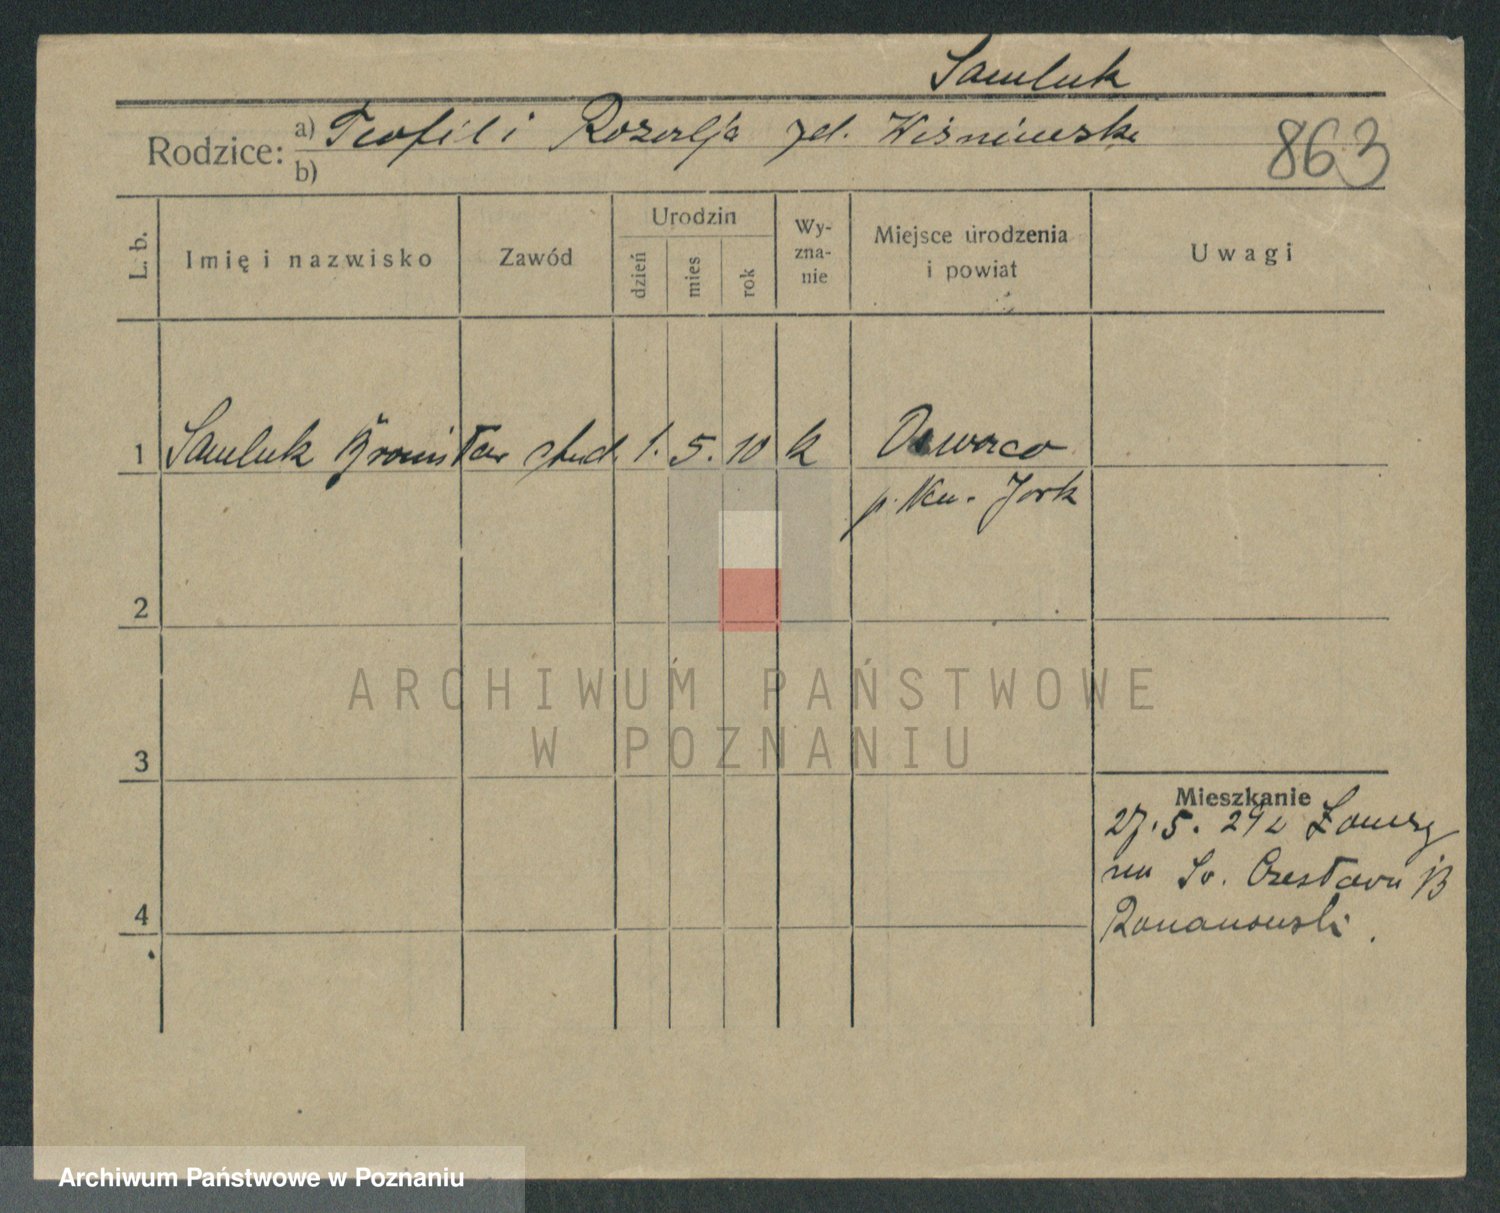 Samluk
Rodzice: a) Teofil i Rozalja zd. Wiśniewska
b)
863
L. b.
Imię i nazwisko
Zawód
Urodzin
dzień
mies
rok
Wy-
zna-
nie
Miejsce urodzenia
i powiat
Uwagi
1 Samluk Bronisław stud. 1. 5. 10 k
p. Neu-Jork
2
3
4
Mieszkanie
27. 5. 29
Św. Czesława 13
Romanowski.
ARCHIWUM PAŃSTWOWE
W POZNANIU
Archiwum Państwowe w Poznaniu